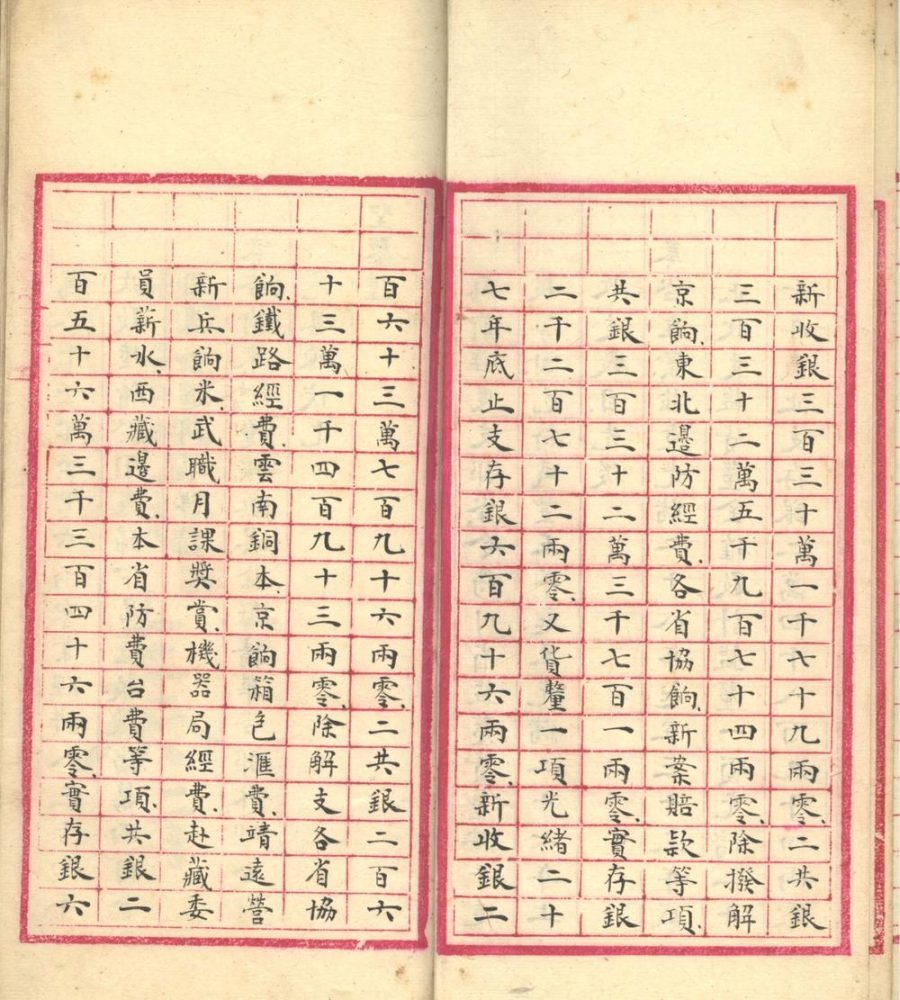 新收銀三百三十萬一千七十九兩零、二共銀
三百三十二萬五千九百七十四兩零、除撥解
京餉、東北邊防經費、各省協餉、新案賠款等項、
共銀三百三十二萬三千七百一兩零、實存銀
二千二百七十二兩零、又貨釐一項光緒二十
七年底止支存銀六百九十六兩零、新收銀二
百六十三萬七百九十六兩零、二共銀二百六
十三萬一千四百九十三兩零、除解支各省協
餉、鐵路經費、雲南銅本、京餉箱包滙費、靖遠營
新兵餉米、武職月課獎賞、機器局經費、赴藏委
員薪水、西藏邊費、本省防費台費等項、共銀二
百五十六萬三千三百四十六兩零、實存銀六